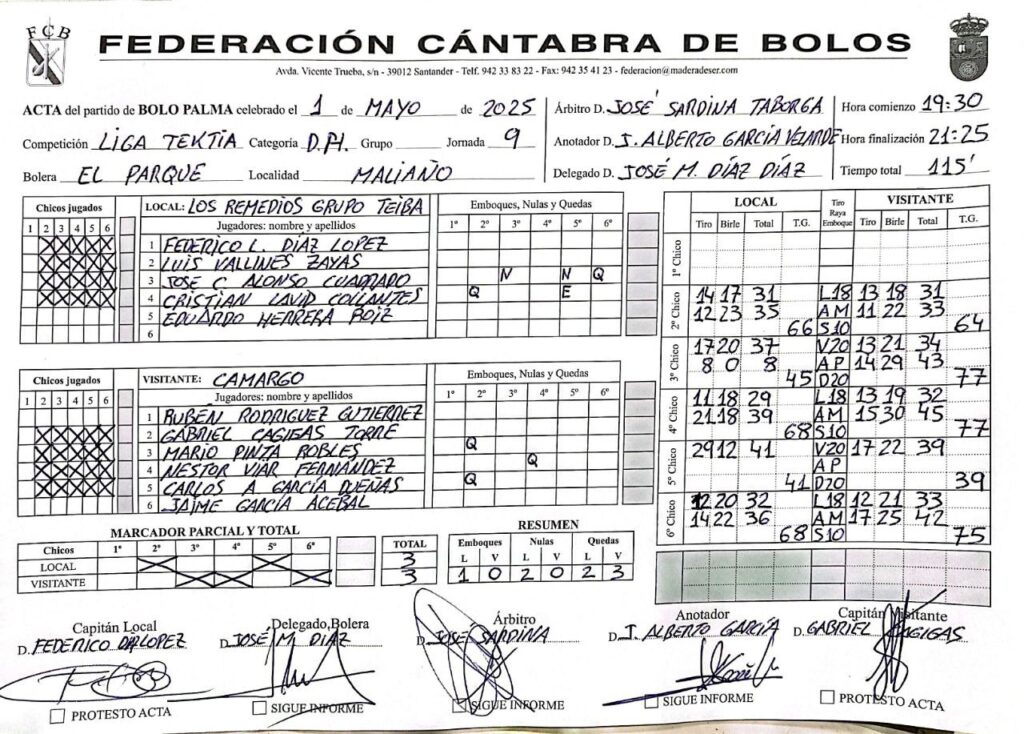 FCB
FEDERACIÓN CÁNTABRA DE BOLOS
Avda. Vicente Trueba, s/n - 39012 Santander - Telf. 942 33 83 22 - Fax: 942 35 41 23 - federacion@maderadeser.com
ACTA del partido de BOLO PALMA celebrado el 1 de MAYO de 2025
Competición LIGA TEKTIA Categoría D.H. Grupo Jornada 9
Bolera EL PARQUE Localidad MALIAÑO
Árbitro D. JOSÉ SARDINA TABORGA
Anotador D. J. ALBERTO GARCÍA VELARDE
Delegado D. JOSÉ M. DÍAZ DÍAZ
Hora comienzo 19:30
Hora finalización 21:25
Tiempo total 115'
Chicos jugados
1 2 3 4 5 6
LOCAL: LOS REMEDIOS GRUPO TEIBA
Jugadores: nombre y apellidos
Emboques, Nulas y Quedas
1º 2º 3º 4º 5º 6º
1 FEDERICO L. DÍAZ LOPEZ
2 LUIS VALLINES ZAYAS
3 JOSE C. ALONSO CUADRADO N N Q
4 CRISTIAN LAVID COLLANTES Q E
5 EDUARDO HERRERA RUIZ
6
Chicos jugados
1 2 3 4 5 6
VISITANTE: CAMARGO
Jugadores: nombre y apellidos
Emboques, Nulas y Quedas
1º 2º 3º 4º 5º 6º
1 RUBÉN RODRIGUEZ GUTIERREZ
2 GABRIEL CAGIGAS TORRE
3 MARIO PINTA ROBLES Q
4 NESTOR VIAR FERNÁNDEZ Q
5 CARLOS A GARCÍA DUEÑAS Q
6 JAIME GARCÍA ACEBAL
MARCADOR PARCIAL Y TOTAL
Chicos 1º 2º 3º 4º 5º 6º TOTAL
LOCAL 3
VISITANTE 3
RESUMEN
Emboques Nulas Quedas
L V L V L V
1 0 2 0 2 3
LOCAL Tiro Raya Emboque VISITANTE
Tiro Birle Total T.G. Tiro Birle Total T.G.
1º Chico
2º Chico
14 17 31 L18 13 18 31
12 23 35 AM 11 22 33
66 S10 64
3º Chico
17 20 37 V20 13 21 34
8 0 8 AP 14 29 43
45 D20 77
4º Chico
11 18 29 L18 13 19 32
21 18 39 AM 15 30 45
68 S10 77
5º Chico
29 12 41 V20 17 22 39
AP
41 D20 39
6º Chico
12 20 32 L18 12 21 33
14 22 36 AM 17 25 42
68 S10 75
Capitán Local
D. FEDERICO
Delegado Bolera
D. JOSÉ M. DÍAZ
Árbitro
D. JOSE SARDINA
Anotador
D. J. ALBERTO GARCÍA
Capitán Visitante
D. GABRIEL CAGIGAS
PROTESTO ACTA
SIGUE INFORME
SIGUE INFORME
SIGUE INFORME
PROTESTO ACTA